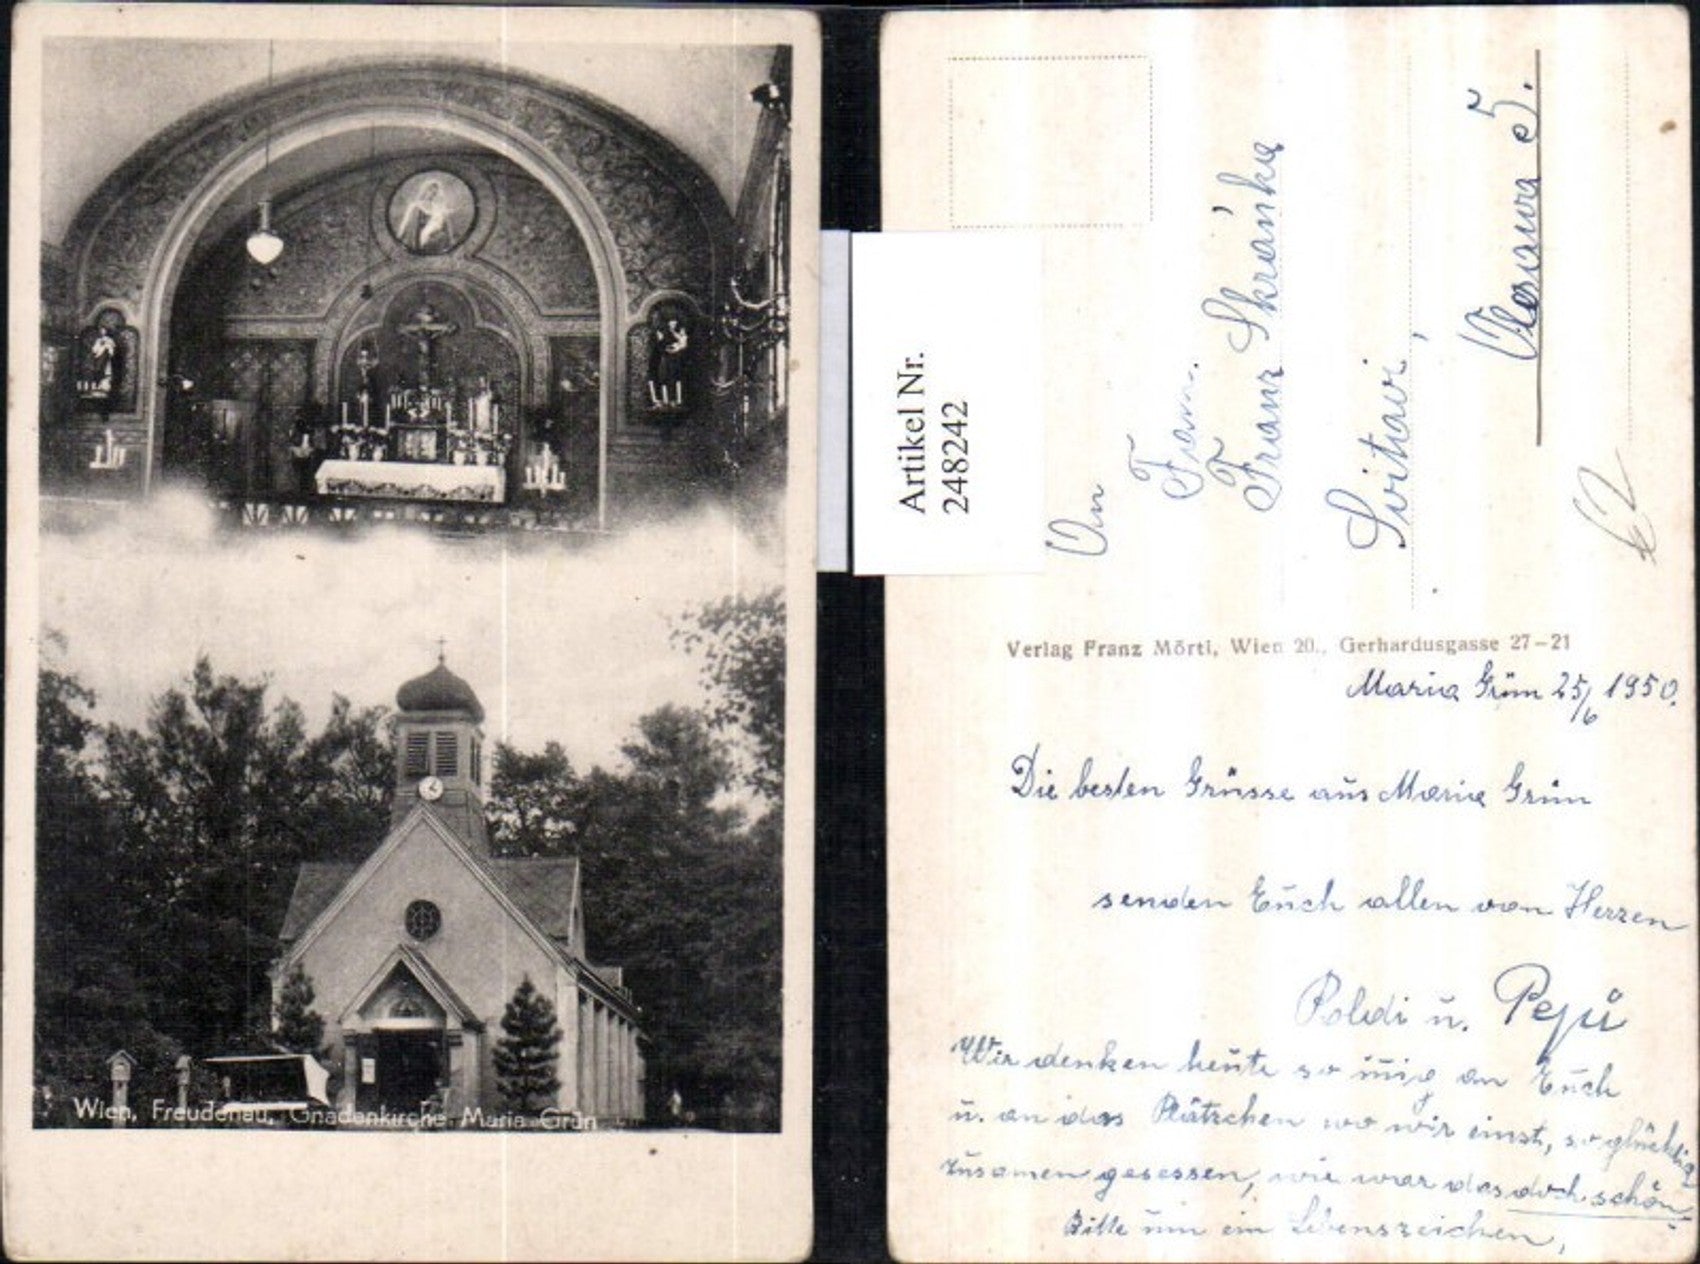 Wien, Freudenau, Gnadenkirche Maria Grün
Artikel Nr.
2482242
An
Fam.
Franz Skránka
Svitavi,
5.
Verlag Franz Mörtl, Wien 20., Gerhardusgasse 27–21
Maria Grün 25/6 1950.
Die besten Grüsse aus Maria Grün
senden Euch allen von Herzen
Poldi u. Pepů
Wir denken heute so innig an Euch
u. an das Plätzchen wo wir einst, so glücklich
zusamen gesessen, wie war das doch schön.
Bitte um ein Lebenszeichen,